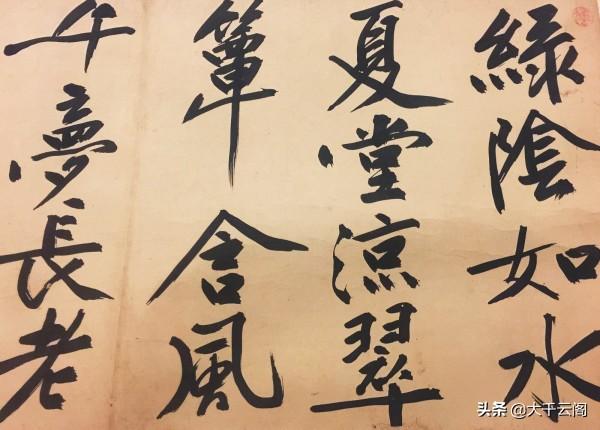 綠陰如水
夏堂涼翠
簟含風
午夢長老
头条 @大千云阁